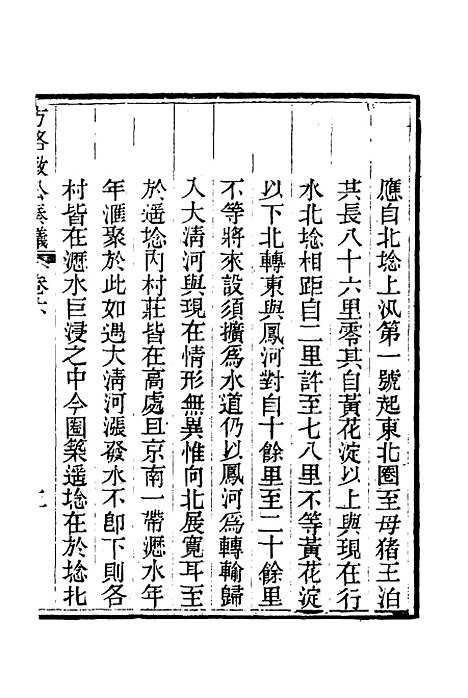 應自北埝上汛第一號起東北圈至母猪王泊
共長八十六里零其自黃花淀以上與現在行
水北埝相距自二里許至七八里不等黃花淀
以下北轉東與鳳河對自十餘里至二十餘里
不等將來設須擴爲水道仍以鳳河爲轉輸歸
入大淸河與現在情形無異惟向北展寬耳至
於遥埝内村莊皆在高處且京南一帶瀝水年
年滙聚於此如遇大淸河漲發水不卽下則各
村皆在瀝水巨浸之中今圈築遥埝在於埝北
方恪敏公奏議 卷六